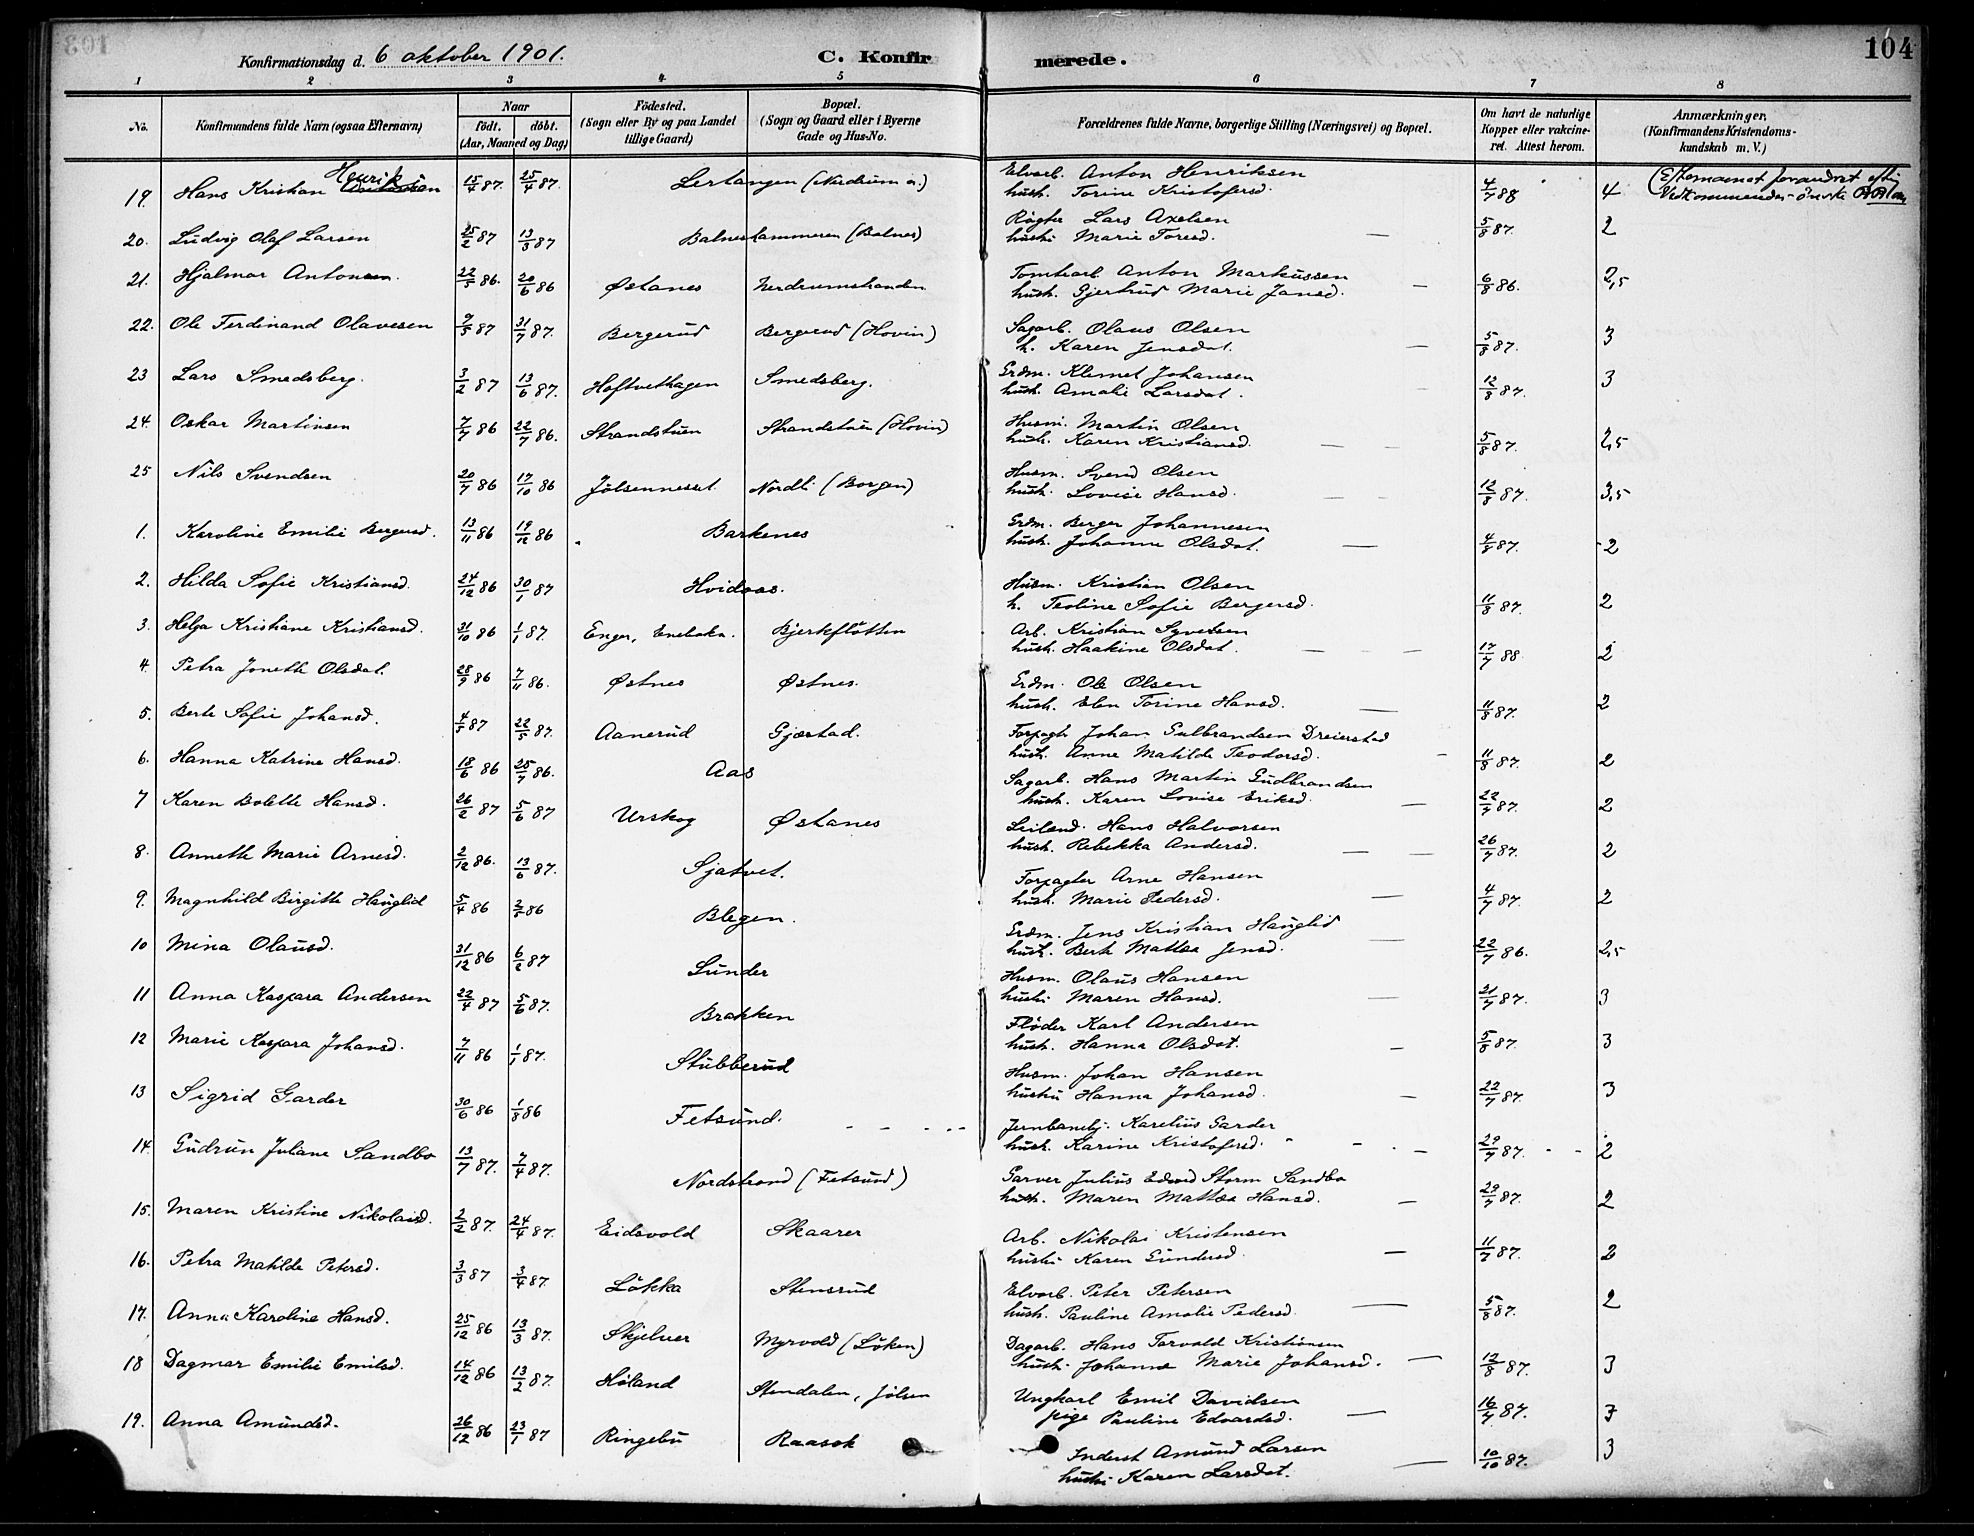 104
Konfirmationsdag d. 6 oktober 1901. C. Konfirmerede.
1 2 3 4 5 6 7 8
No. Konfirmandens fulde Navn (ogsaa Efternavn) Naar födt. döbt. (Aar, Maaned og Dag) Födested. (Sogn eller By og paa Landet tillige Gaard) Bopæl. (Sogn og Gaard eller i Byerne Gade og Hus-No. Forældrenes fulde Navne, borgerlige Stilling (Næringsvei) og Bopæl. Om havt de naturlige Kopper eller vakcineret. Attest herom. Anmærkninger. (Konfirmandens Kristendomskundskab m. V.)
19. Hans Kristian Henrik 15/4 87. 25/4 87. Lertangen (Nerdrum a.) Elvarb. Anton Henriksen 4/7 88 4 (Efternavnet forandret efter
hustr. Torine Kristofersd. Vedkommendes önske
20. Ludvig Olaf Larsen 25/2 87 13/3 87 Balneshammeren (Balnes) Røgter Lars Axelsen 5/8 87. 2
hustr. Marie Toresd.
21. Hjalmar Antonsen. 22/5 86. 20/6 86 Østanes Nerdrumstranden Tomtearb. Anton Markussen 6/8 86. 2,5
hustr. Gjertrud Marie Jansd.
22. Ole Ferdinand Olavesen 9/5 87 31/7 87. Bergerud Bergerud (Hovin) Sagarb. Olaus Olsen 5/8 87. 3
h. Karen Jensdat.
23 Lars Smedsberg. 3/2 87 13/6 87. Hoftvethagen Smedsberg. Grdm. Klemet Johansen 12/8 87. 3
hustr. Amalie Larsdat.
24. Oskar Martinsen 7/7 86 22/7 86. Strandstuen Strandstuen (Hovin) Husm. Martin Olsen 5/8 87. 2,5
hustr. Karen Kristiansd.
25 Nils Svendsen 20/7 86 17/10 86 Jølsenneset Nordli (Borgen) Husm. Svend Olsen 12/8 87. 3,5
hustr. Lovise Hansd.
1. Karoline Emilie Bergersd. 13/11 86 19/12 86 Barkenes Grdm. Berger Johannesen 4/8 87. 2
hustr. Johanne Olsdat.
2. Hilda Sofie Kristiansd. 24/12 86 30/1 87 Hvidaas. Husm. Kristian Olsen 11/8 87. 2
h. Teoline Sofie Bergersd.
3. Helga Kristiane Kristiansd. 31/10 86 1/1 87. Enger, Enebakn. Bjerkeflötten Arb. Kristian Syvertsen 17/7 88 2
hustr. Haakine Olsdat.
4. Petra Jonette Olsdat. 28/9 86 7/11 86. Østnes Østnes. Grdm. Ole Olsen 11/8 87. 2
hustr. Elen Torine Hansd.
5. Berte Sofie Johansd. 4/5 87 22/5 87. Aanerud Gjøstad. Forpagt. Johan Gulbrandsen Dreierstad 11/8 87. 2
hustr. Anne Matilde Teodorsd.
6. Hanna Katrine Hansd. 18/6 86 25/7 86. Aas Sagarb. Hans Martin Gudbrandsen 22/7 87. 2
hustr. Karen Lovise Eriksd.
7 Karen Bolette Hansd. 26/2 87 5/6 87 Urskog Østanes Leilænd. Hans Halvorsen 26/7 87. 2
hustr. Rebekka Andersd.
8. Annette Marie Arnesd. 2/12 86. 13/6 87. Sjatvet. Forpagter Arne Hansen 4/7 87. 2
hustr. Marie Pedersd.
9. Magnhild Birgitte Hauglid 5/4 86 2/5 86 Blegen. Grdm. Jens Kristian Hauglid 22/7 86. 2,5
hustr. Berte Mattea Jensd.
10 Mina Olausd. 31/12 86 6/2 87 Sunder Husm. Olaus Hansen 21/7 87. 3
hustr. Maren Hansd.
11 Anna Kaspara Andersen 22/4 87 5/6 87. Brakken Fløder Karl Andersen 5/8 87. 3
hustr. Hanna Olsdat.
12 Marie Kaspara Johansd. 7/11 86 1/1 87. Stubberud Husm. Johan Hansen 22/7 87. 3
hustru Hanna Johansd.
13 Sigrid Garder 30/6 86 1/8 86 Fetsund. Jernbanebtj. Karelius Garder 29/7 87. 2
hustr. Karine Kristofersd.
14. Gudrun Juliane Sandbo 13/7 87. 7/4 87. Nordstrand (Fetsund) Garver Julius Edvard Storm Sandbo 29/7 87. 2
hustr. Maren Mattea Hansd.
15. Maren Kristine Nikolaisd. 2/2 87. 24/4 87. Eidsvold Skaarer Arb. Nikolai Kristensen 11/7 87. 2
hustr. Karen Gundersd.
16. Petra Matilde Petersd. 3/3 87 3/4 87. Løkka Stensrud Elvarb. Peter Petersen 5/8 87. 2
hustr. Pauline Amalie Pedersd.
17. Anna Karoline Hansd. 25/12 86 13/3 87. Skjelver Myrvold (Løken) Dagarb. Hans Torvald Kristiansen 12/8 87. 3
hustr. Johanne Marie Johansd.
18 Dagmar Emilie Emilsd. 14/12 86 13/2 87. Høland Stendalen, Jølsen Ungkarl Emil Davidsen 16/7 87. 3
pige Pauline Edvardsd.
19. Anna Amundsd. 26/12 86 23/1 87 Ringebu Raasok Inderst Amund Larsen 10/10 87. 3
hustr. Karen Larsdat.